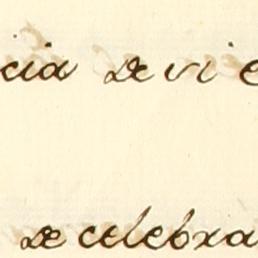 cia de vi e
de celebra